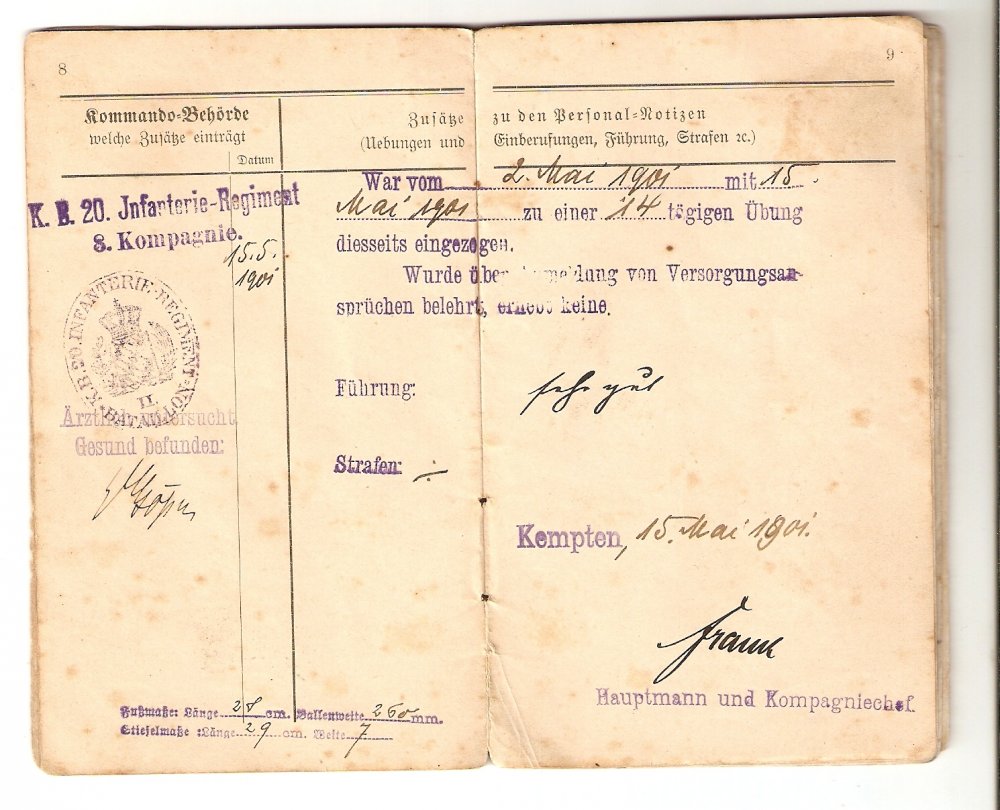 8
9
Kommando-Behörde
welche Zusätze einträgt
Datum
Zusätze zu den Personal-Notizen
(Uebungen und Einberufungen, Führung, Strafen ꝛc.)
K. B. 20. Infanterie-Regiment
8. Kompagnie.
15.5.
1901
K.B. 20. INFANTERIE-REGIMENT
II. BATAILLON
Ärztlich untersucht
Gesund befunden:
War vom 2. Mai 1901 mit 15.
Mai 1901 zu einer 14 tägigen Übung
diesseits eingezogen.
Wurde über Anmeldung von Versorgungsan-
sprüchen belehrt, erhebt keine.
Führung: sehr gut
Strafen: -.
Kempten, 15. Mai 1901.
Frank
Hauptmann und Kompagniechef.
Fußmaße: Länge 28 cm. Ballenweite 260 mm.
Stiefelmaße: Länge 29 cm. Weite 7